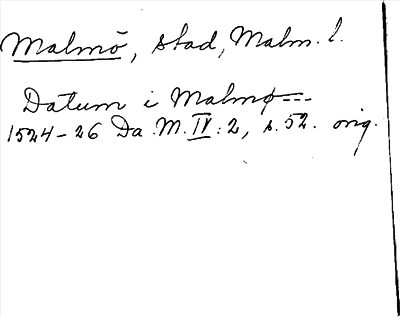 Malmö, stad, Malm. l.
Datum i Malmø---
1524-26 Da. M. IV: 2, s. 52. orig.